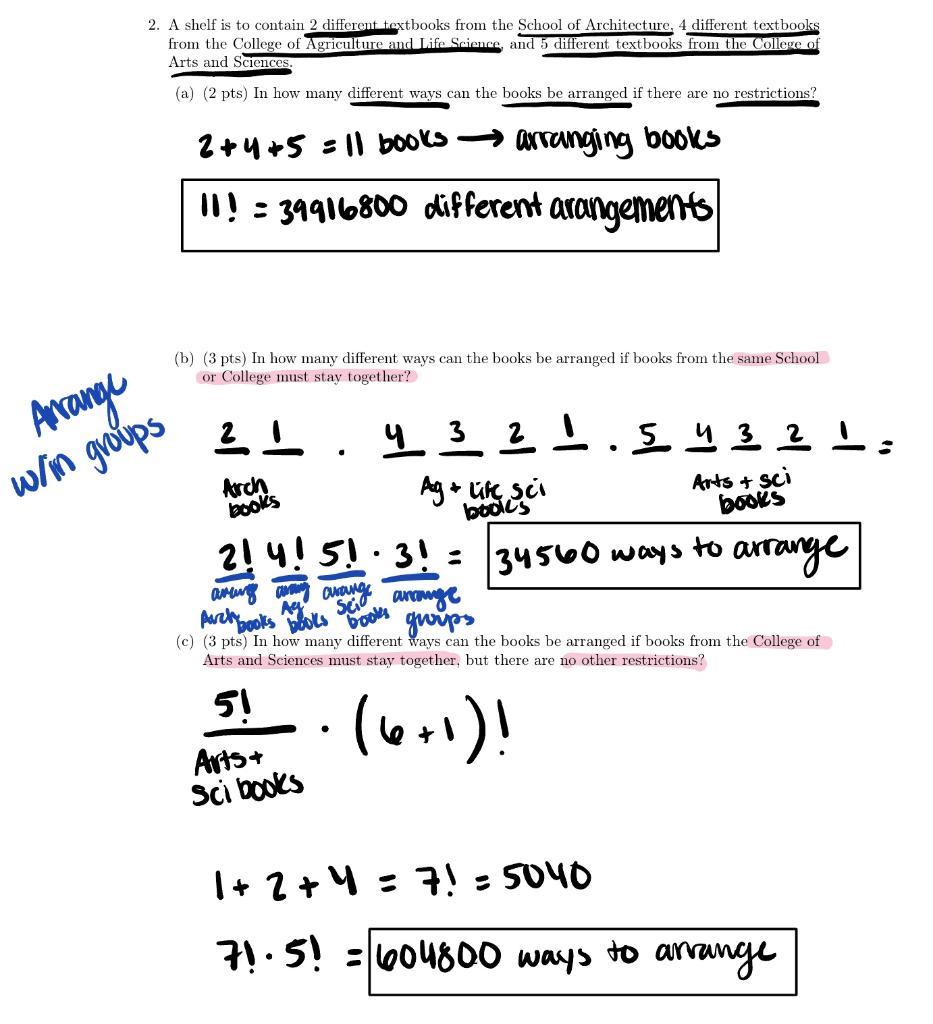 2. A shelf is to contain 2 different textbooks from the School of Architecture, 4 different textbooks
from the College of Agriculture and Life Science, and 5 different textbooks from the College of
Arts and Sciences.
(a) (2 pts) In how many different ways can the books be arranged if there are no restrictions?
2+4+5 = 11 books → arranging books
11! = 39916800 different arangements
(b) (3 pts) In how many different ways can the books be arranged if books from the same School
or College must stay together?
Arrange
w/in groups
2 1 . 4 3 2 1 . 5 4 3 2 1 =
Arch
books
Ag + life sci
books
Arts + sci
books
2! 4! 5! · 3! = 34560 ways to arrange
arrang
Arch books
arrang
Ag
books
arrange
Sci
books
arrange
groups
(c) (3 pts) In how many different ways can the books be arranged if books from the College of
Arts and Sciences must stay together, but there are no other restrictions?
5! · (6+1)!
Arts+
Sci books
1+ 2+4 = 7! = 5040
7! · 5! = 604800 ways to arrange